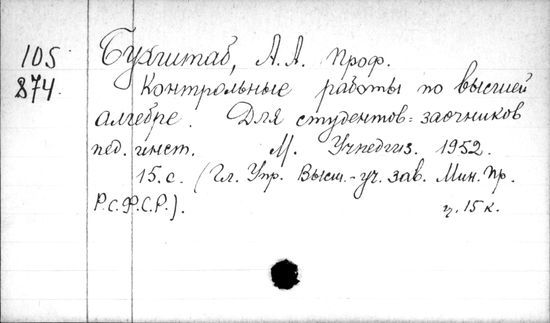 105 Бухштаб, А. А. Проф.
874. Контрольные работы по высшей
алгебре. Для студентов-заочников
пед. инст. М. Учпедгиз. 1952.
15. с. (Гл. Упр. Высш.-уч. зав. Мин. пр.
Р.С.Ф.С.Р.). ц. 15 к.